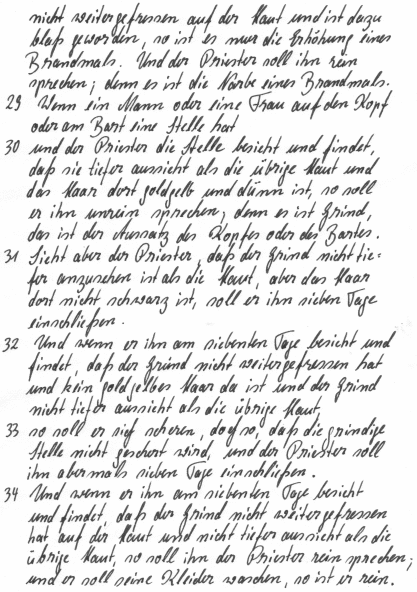 nicht weitergefressen auf der Haut und ist dazu
blaß geworden, so ist es nur die Erhöhung eines
Brandmals. Und der Priester soll ihn rein
sprechen; denn es ist die Narbe eines Brandmals.
29 Wenn ein Mann oder eine Frau auf dem Kopf
oder am Bart eine Stelle hat
30 und der Priester die Stelle besieht und findet,
daß sie tiefer aussieht als die übrige Haut und
das Haar dort goldgelb und dünn ist, so soll
er ihn unrein sprechen; denn es ist Grind,
das ist der Aussatz des Kopfes oder des Bartes.
31 Sieht aber der Priester, daß der Grind nicht tie=
fer anzusehen ist als die Haut, aber das Haar
dort nicht schwarz ist, soll er ihn sieben Tage
einschließen.
32 Und wenn er ihn am siebenten Tage besieht und
findet, daß der Grind nicht weitergefressen hat
und kein goldgelbes Haar da ist und der Grind
nicht tiefer aussieht als die übrige Haut,
33 so soll er sich scheren, doch so, daß die grindige
Stelle nicht geschert wird, und der Priester soll
ihn abermals sieben Tage einschließen.
34 Und wenn er ihn am siebenten Tage besieht
und findet, daß der Grind nicht weitergefressen
hat auf der Haut und nicht tiefer aussieht als die
übrige Haut, so soll ihn der Priester rein sprechen;
und er soll seine Kleider waschen, so ist er rein.